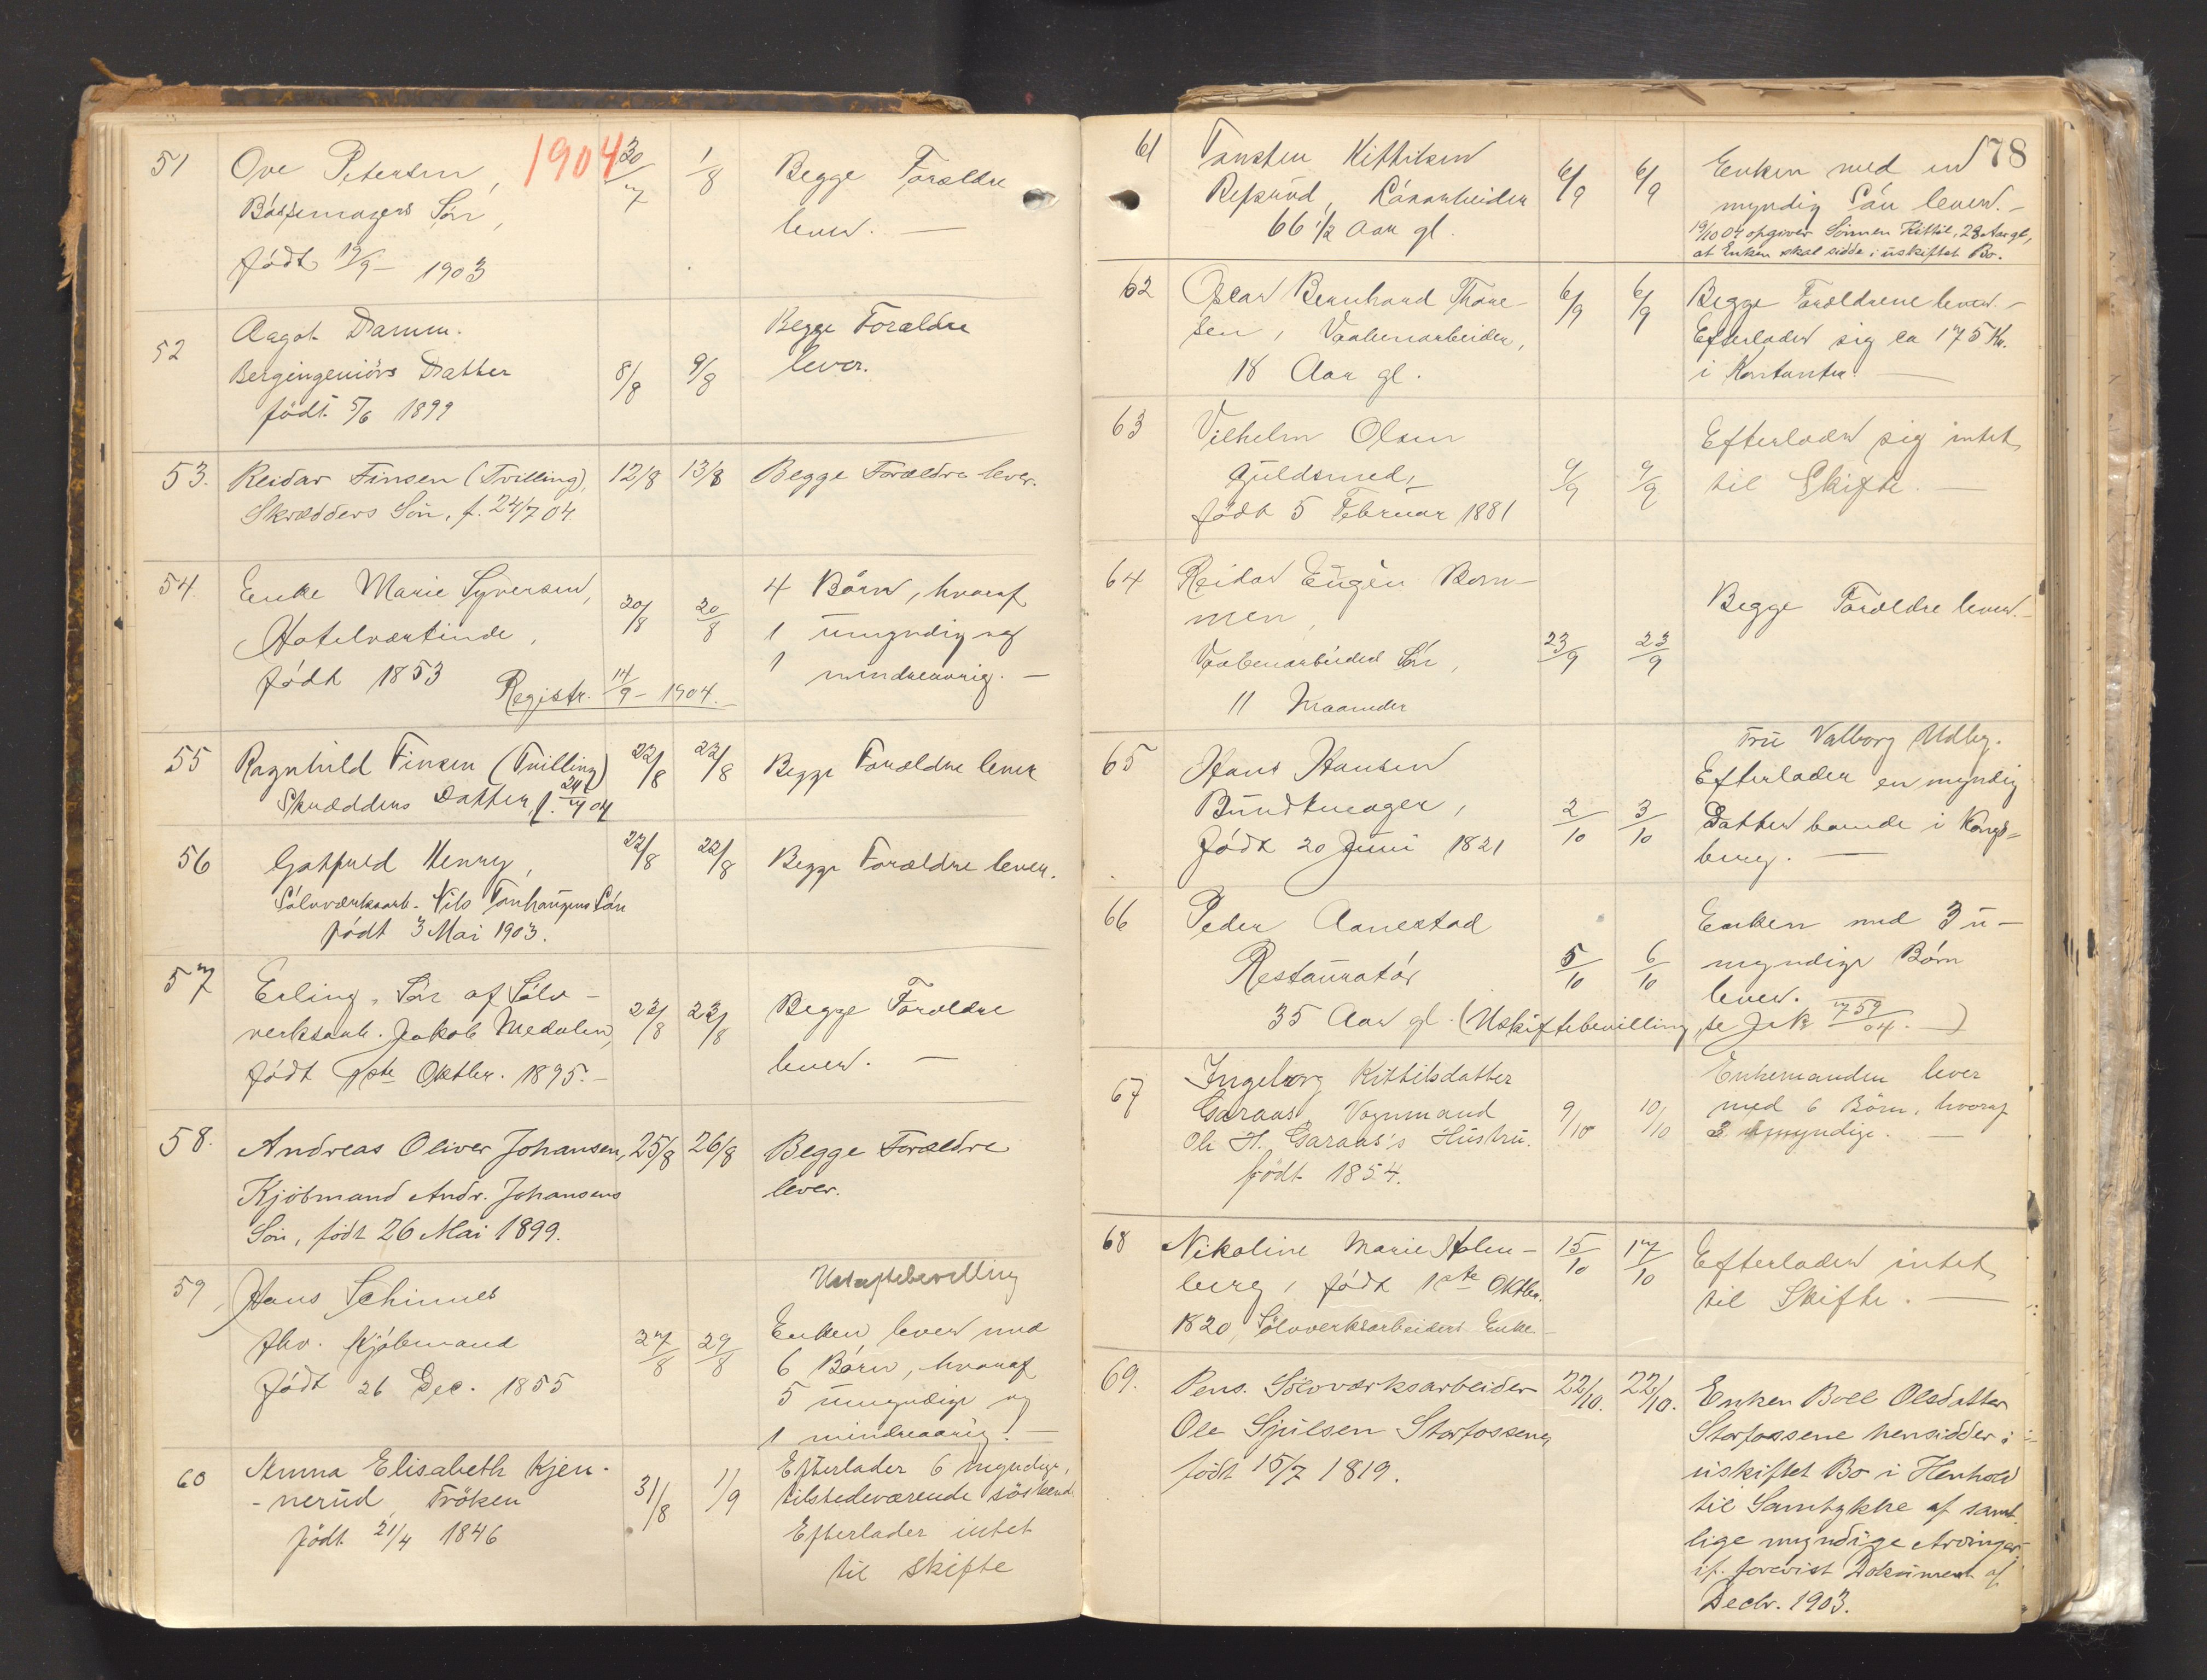 1904
51 Ove Petersen, 30/7 1/8 Begge Forældre
Bøssemagers Søn, lever. —
født 12/9 - 1903
52 Aagot Damm. 8/8 9/8 Begge Forældre
Bergingeniörs Datter lever.
födt 5/6 1899
53. Reidar Finsen (Tvilling), 12/8 13/8 Begge Forældre lever.
Skrædders Sön, f. 24/7 04.
54. Enke Marie Syversen, 20/8 20/8 4 Børn, hvoraf
Hotelværtinde, 1 umyndig og
født 1853 1 mindreaarig. —
Registr. 14/9 - 1904.
55 Ragnhild Finsen (Tvilling) 22/8 23/8 Begge Forældre lever
Skrædders Datter f. 24/7 04
56 Gotfred Henry, 22/8 22/8 Begge Forældre lever.
Sølvværksarb. Nils Søn
født 3 Mai 1903.
57 Erling, Søn af Sølv- 22/8 23/8 Begge Forældre
verksarb. Jakob Medalen, lever. —
født 1ste Oktbr. 1895. -
58. Andreas Oliver Johansen, 25/8 26/8 Begge Forældre
Kjöbmand Andr. Johansens lever.
Sön, födt 26 Mai 1899.
59 Hans Schinnes 27/8 29/8 Uskiftebevilling
fhv. Kjøbmand Enken lever med
født 26 Dec. 1855 6 Børn, hvoraf
5 umyndige og
1 mindreaarig. —
60 Anna Elisabeth Kjen- 31/8 1/9 Efterlader 6 myndige,
-nerud, Fröken tilstedeværende söskend
födt 21/4 1846 Efterlader intet
til skifte
78
61 Torsten Kittilsen 6/9 6/9 Enken med en
Refsund, Løsarbeider myndig Søn lever. -
66 1/2 Aar gl. 19/10 04 opgiver Sönnen Kittil, 28 Aar gl,
at Enken skal sidde i uskiftet Bo.
62 Oscar Bernhard Thore- 6/9 6/9 Begge Forældrene lever. -
sen, Vaabenarbeider, Efterlader sig ca 175 Kr.
18 Aar gl. i Kontanter. —
63 Vilhelm Olsen 9/9 9/9 Efterlader sig intet
Guldsmed, til Skifte. —
født 5 Februar 1881
64 Reidar Eugèn Bom- 23/9 23/9 Begge Forældre lever. -
men,
Vaabenarbeiders Søn,
11 Maaneder
65 Hans Hansen 2/10 3/10 Fru Valborg Udby.
Bundtmager, Efterlader en myndig
født 20 Juni 1821 Datter boende i Kongs-
berg. —
66 Peder Aanestad 5/10 6/10 Enken med 3 u-
Restauratør myndige Børn
lever.
35 Aar gl. (Uskiftebevilling, se Jrk 759/04. —)
67 Ingeborg Kittilsdatter 9/10 10/10 Enkemanden lever
Garaas, Vognmand med 6 Börn, hvoraf
Ole H. Garaas's Hustru. 3 umyndige. —
födt 1854.
68 Nikoline Marie Holm- 15/10 17/10 Efterlader intet
berg, født 1ste Oktbr. til Skifte. —
1820, Sølvverksarbeiders Enke -
69. Pens. Sölvværksarbeider 22/10. 22/10. Enken Boel Olsdatter
Ole Sjulsen Storfossene, Storfossene hensidder i
födt 15/7 1819. uskiftet Bo i Henhold
til Samtykke af samt-
lige myndige Arvinger
if. forevist Dokument af
Decbr. 1903.